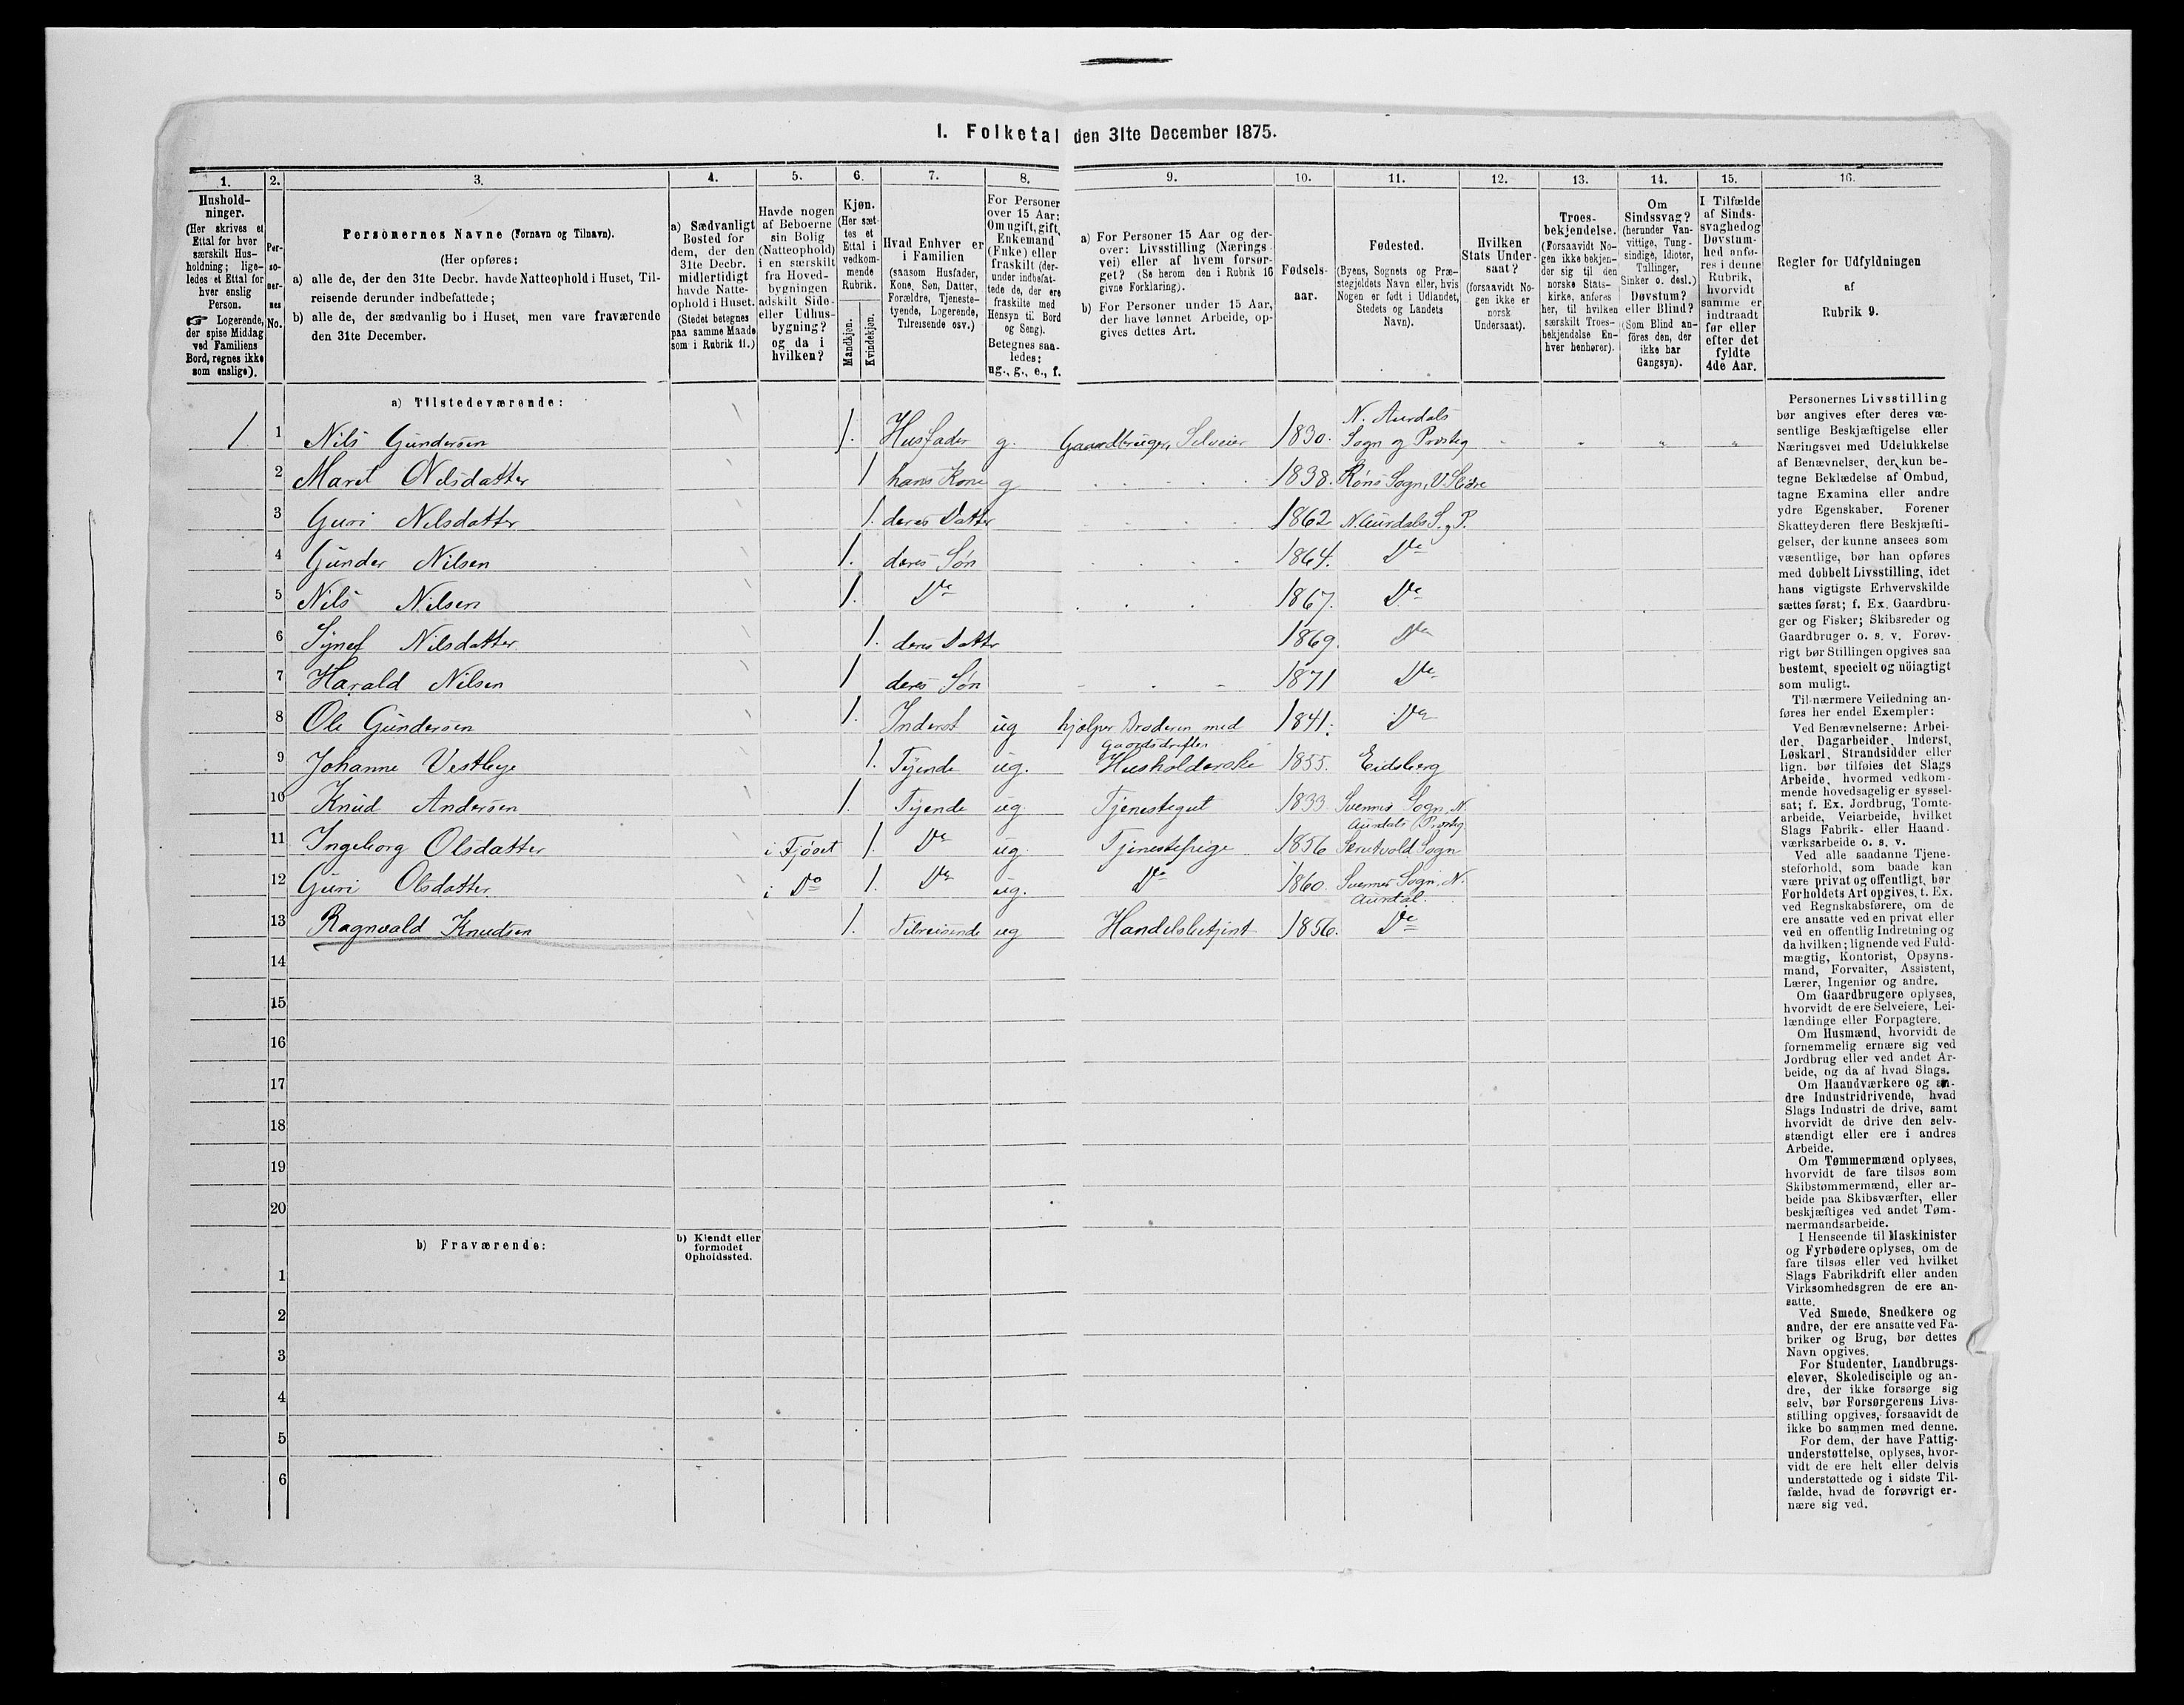 I. Folketal den 31te December 1875.
1. 2. 3. 4. 5. 6. 7. 8. 9. 10. 11. 12. 13. 14. 15. 16.
Hushold-
ninger.
(Her skrives et
Ettal for hver
særskilt Hus-
holdning; lige-
ledes et Ettal for
hver enslig
Person.
☞ Logerende,
der spise Middag
ved Familiens
Bord, regnes ikke
som enslige).
Per-
so-
ner-
nes
No.
Personernes Navne (Fornavn og Tilnavn).
(Her opføres:
a) alle de, der den 31te Decbr. havde Natteophold i Huset, Til-
reisende derunder indbefattede;
b) alle de, der sædvanlig bo i Huset, men vare fraværende
den 31te December.
a) Sædvanligt
Bosted for
dem, der den
31te Decbr.
midlertidigt
havde Natte-
ophold i Huset.
(Stedet betegnes
paa samme Maade
som i Rubrik 11.)
Havde nogen
af Beboerne
sin Bolig
(Natteophold)
i en særskilt
fra Hoved-
bygningen
adskilt Side-
eller Udhus-
bygning?
og da i
hvilken?
Kjøn.
(Her sæt-
tes et
Ettal i
vedkom-
mende
Rubrik.
Mandkjøn.
Kvindekjøn.
Hvad Enhver er
i Familien
(saasom Husfader,
Kone, Søn, Datter,
Forældre, Tjeneste-
tyende, Logerende,
Tilreisende osv.)
For Personer
over 15 Aar:
Om ugift, gift,
Enkemand
(Enke) eller
fraskilt (der-
under indbefat-
tede de, der ere
fraskilte med
Hensyn til Bord
og Seng).
Betegnes saa-
ledes:
ug., g., e., f.
a) For Personer 15 Aar og der-
over: Livsstilling (Nærings-
vei) eller af hvem forsør-
get? (Se herom den i Rubrik 16
givne Forklaring).
b) For Personer under 15 Aar,
der have lønnet Arbeide, op-
gives dettes Art.
Fødsels-
aar.
Fødested.
(Byens, Sognets og Præ-
stegjeldets Navn eller, hvis
Nogen er født i Udlandet,
Stedets og Landets
Navn).
Hvilken
Stats Under-
saat?
(forsaavidt No-
gen ikke er
norsk
Undersaat).
Troes-
bekjendelse.
(Forsaavidt No-
gen ikke bekjen-
der sig til den
norske Stats-
kirke, anføres
her, til hvilken
særskilt Troes-
bekjendelse En-
hver henhører).
Om
Sindssvag?
(herunder Van-
vittige, Tung-
sindige, Idioter,
Tullinger,
Sinker o. desl.)
Døvstum?
eller Blind?
(Som Blind an-
föres den, der
ikke har
Gangsyn).
I Tilfælde
af Sinds-
svaghed og
Døvstum-
hed anfø-
res i denne
Rubrik,
hvorvidt
samme er
indtraadt
før eller
efter det
fyldte
4de Aar.
Regler for Udfyldningen
af
Rubrik 9.
a) Tilstedeværende:
1 1 Nils Gundersen 1. Husfader g. Gaardbruger, Selveier 1830. N. Aurdals
Sogn og Præsteg
2 Marit Nilsdatter 1 hans Kone g 1838. Røns Sogn, V. Slidre
3 Guri Nilsdatter 1. deres Datter 1862 N. Aurdals S. og P.
4 Gunder Nilsen 1. deres Søn 1864. Do
5 Nils Nilsen 1. Do 1867. Do
6 Synef Nilsdatter 1. deres Datter 1869. Do
7 Harald Nilsen 1 deres Søn 1871 Do
8 Ole Gundersen 1. Inderst ug hjælper Broderen med
Gaardsdriften 1841. Do
9 Johanne Vestbye 1. Tyende ug. Husholderske 1855. Eidsberg
10 Knud Andersen 1. Tyende ug Tjenestegut 1833 Svennes Sogn, N.
Aurdals Præsteg
11 Ingeborg Olsdatter i Fjøset 1. Do ug. Tjenestepige 1856 Skrutvold Sogn
12 Guri Olsdatter i Do 1. Do ug. Do 1860. Svennes Sogn, N.
Aurdal.
13 Ragnvald Knudsen 1. Tilreisende ug Handelsbetjent 1856. Do
14
15
16
17
18
19
20
b) Fraværende:
b) Kjendt eller
formodet
Opholdssted.
1
2
3
4
5
6
Personernes Livsstilling
bør angives efter deres væ-
sentlige Beskjæftigelse eller
Næringsvei med Udelukkelse
af Benævnelser, der kun be-
tegne Beklædelse af Ombud,
tagne Examina eller andre
ydre Egenskaber. Forener
Skatteyderen flere Beskjæfti-
gelser, der kunne ansees som
væsentlige, bør han opføres
med dobbelt Livsstilling, idet
hans vigtigste Erhvervskilde
sættes først; f. Ex. Gaardbru-
ger og Fisker; Skibsreder og
Gaardbruger o. s. v. Forøv-
rigt bør Stillingen opgives saa
bestemt, specielt og nöiagtigt
som muligt.
Til nærmere Veiledning an-
føres her endel Exempler:
Ved Benævnelserne: Arbei-
der, Dagarbeider, Inderst,
Løskarl, Strandsidder eller
lign. bør tilføies det Slags
Arbeide, hvormed vedkom-
mende hovedsagelig er syssel-
sat; f. Ex. Jordbrug, Tomte-
arbeide, Veiarbeide, hvilket
Slags Fabrik- eller Haand-
værksarbeide o. s. v.
Ved alle saadanne Tjene-
steforhold, som baade kan
være privat og offentligt, bør
Forholdets Art opgives, t. Ex.
ved Regnskabsførere, om de
ere ansatte ved en privat eller
ved en offentlig Indretning og
da hvilken; lignende ved Fuld-
mægtig, Kontorist, Opsyns-
mand, Forvalter, Assistent,
Lærer, Ingeniør og andre.
Om Gaardbrugere oplyses,
hvorvidt de ere Selveiere, Lei-
lændinge eller Forpagtere.
Om Husmænd, hvorvidt de
fornemmelig ernære sig ved
Jordbrug eller ved andet Ar-
beide, og da af hvad Slags.
Om Haandværkere og an-
dre Industridrivende, hvad
Slags Industri de drive, samt
hvorvidt de drive den selv-
stændigt eller ere i andres
Arbeide.
Om Tømmermænd oplyses,
hvorvidt de fare tilsøs som
Skibstømmermænd, eller ar-
beide paa Skibsværfter, eller
beskjæftiges ved andet Tøm-
mermandsarbeide.
I Henseende til Maskinister
og Fyrbødere oplyses, om de
fare tilsøs eller ved hvilket
Slags Fabrikdrift eller anden
Virksomhedsgren de ere an-
satte.
Ved Smede, Snedkere og
andre, der ere ansatte ved Fa-
briker og Brug, bør dettes
Navn opgives.
For Studenter, Landbrugs-
elever, Skoledisciple og an-
dre, der ikke forsørge sig
selv, bør Forsørgerens Livs-
stilling opgives, forsaavidt de
ikke bo sammen med denne.
For dem, der have Fattig-
understøttelse, oplyses, hvor-
vidt de ere helt eller delvis
understøttede og i sidste Til-
fælde, hvad de forøvrigt er-
nære sig ved.